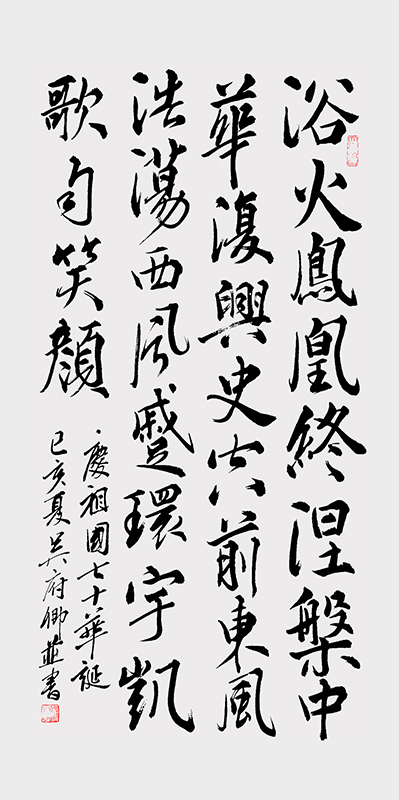 浴火鳳凰終涅槃中
華復興史空前東風
浩蕩西風蹙環宇凱
歌句笑顏
慶祖國七十華誕
己亥夏吳府卿並書